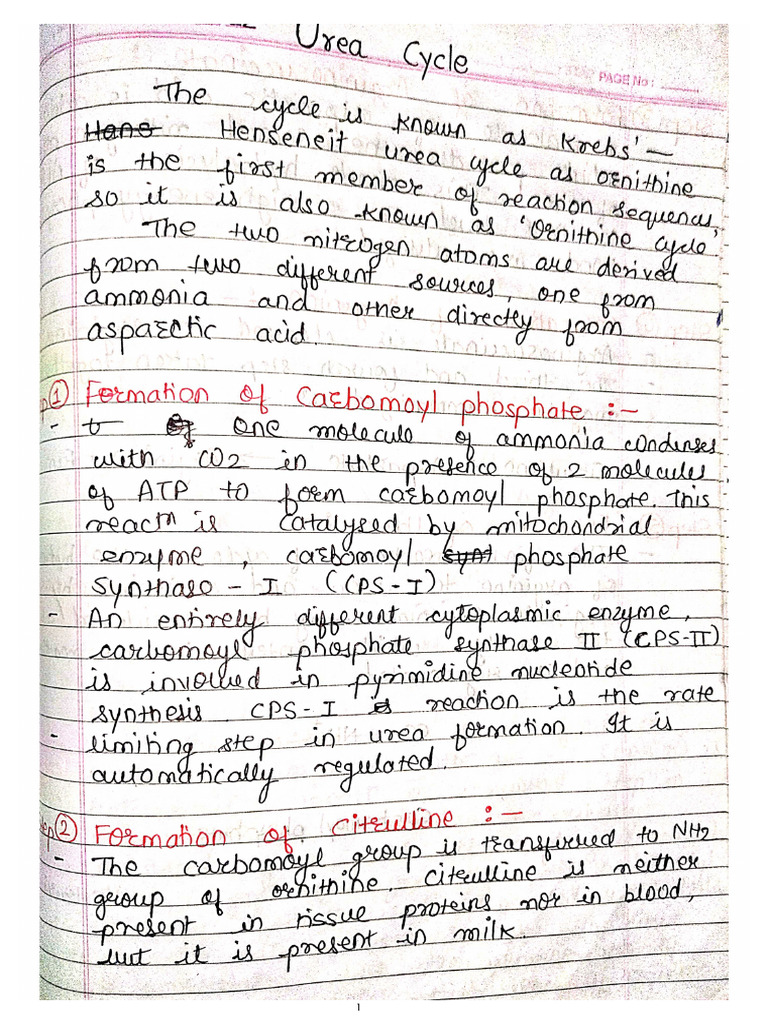 Urea Cycle
PAGE No :
The cycle is known as Krebs' –
Hane Henseneit urea cycle as ornithine
is the first member of reaction sequences,
so it is also known as 'Ornithine cycle
The two nitrogen atoms are derived
from two different sources, one from
ammonia and other directly from
aspartic acid.
① Formation of Carbomoyl phosphate :-
- One molecule of ammonia condenses
with CO2 in the presence of 2 molecules
of ATP to form carbomoyl phosphate. This
reactn is catalysed by mitochondrial
enzyme, carbomoyl synt phosphate
synthase - I (CPS-I)
- An entirely different cytoplasmic enzyme,
carbomoyl phosphate synthase II (CPS-II)
is involved in pyrimidine nucleotide
synthesis. CPS-I reaction is the rate
- limiting step in urea formation. It is
automatically regulated.
② Formation of Citrulline :-
- The carbomoyl group is transferred to NH2
group of ornithine. Citrulline is neither
present in tissue proteins nor in blood,
but it is present in milk.
1